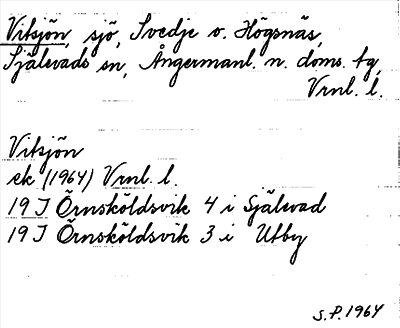 Vitsjön, sjö, Svedje o. Högsnäs,
Själevads sn, Ångermanl. n. doms. tg,
Vrnl. l.
Vitsjön
ek (1964) Vrnl. l.
19 J Örnsköldsvik 4 i Själevad
19 J Örnsköldsvik 3 i Utby
S.P. 1964